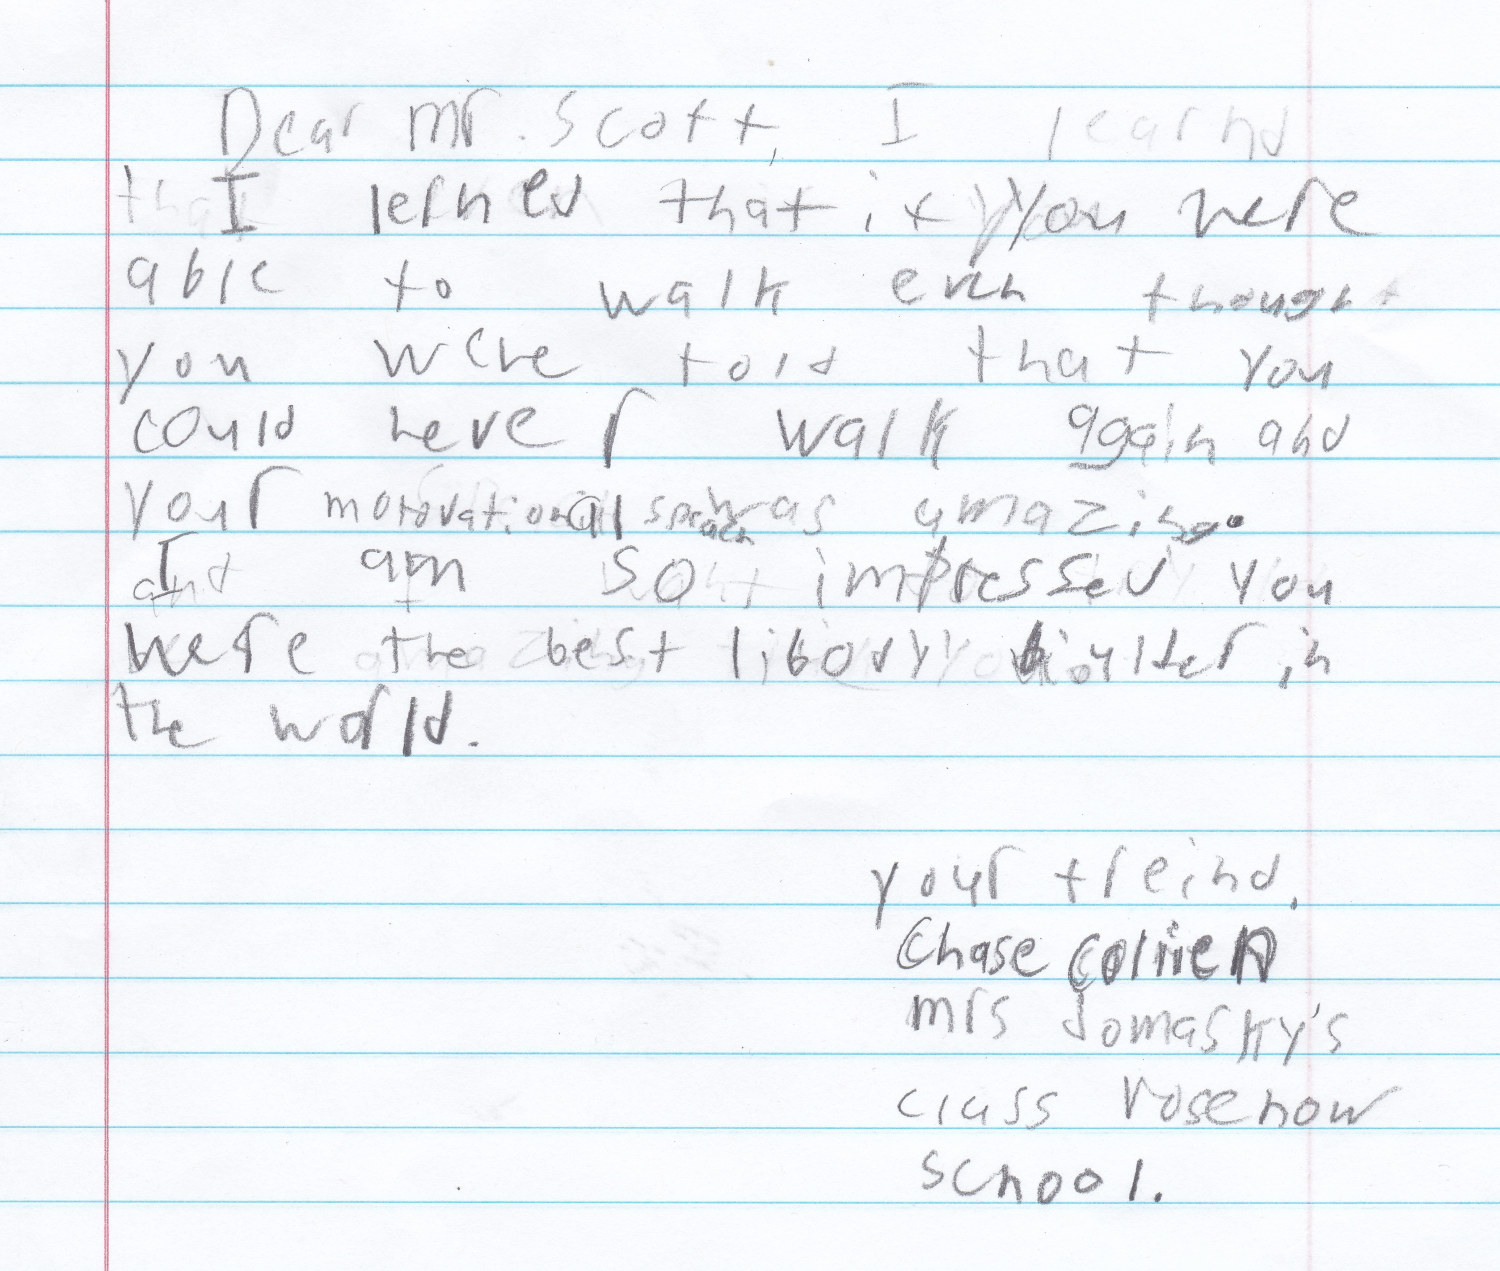 Dear mr. Scott, I learnd
I lerned that if you were
able to walk even though
you were told that you
could never walk again and
your motovational speach was amazing.
I am so impressed you
were the best libory biulter in
the world.
your freind.
Chase
mrs Jomasky's
class rosenow
school.